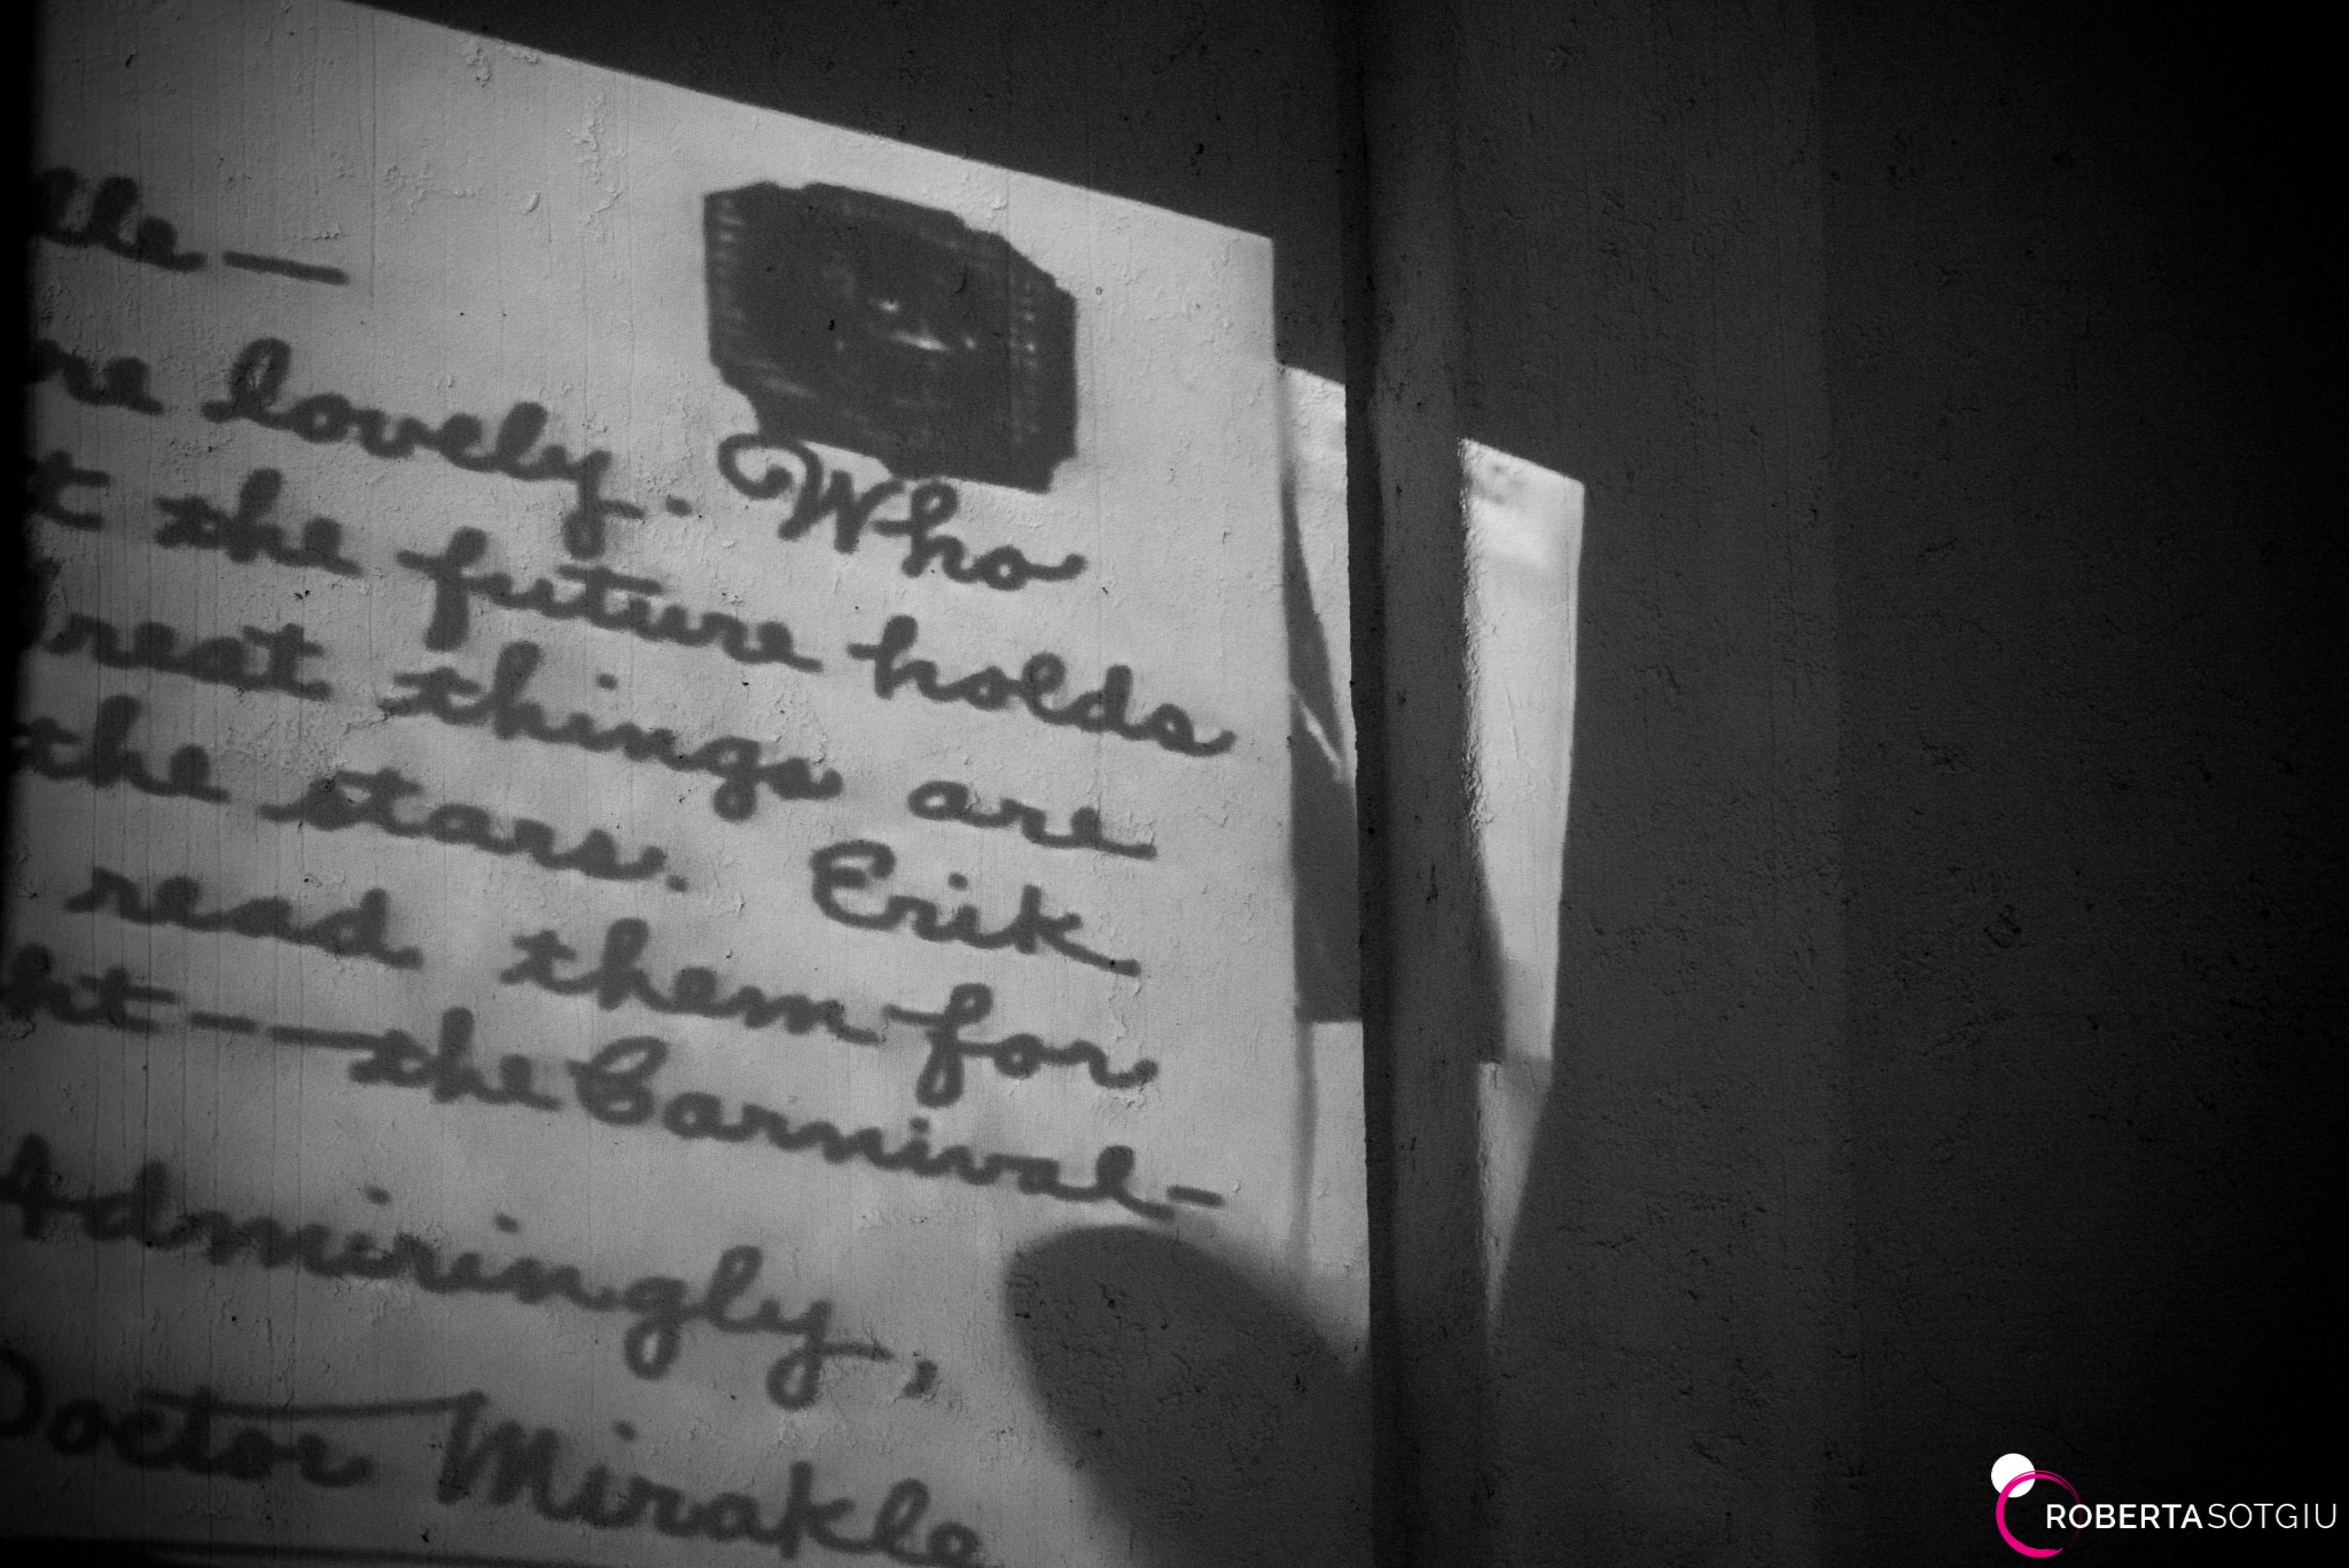 lle—
re lovely. Who
t the future holds
reat things are
the stars. Erik
read them for
ht——the Carnival—
Admiringly,
Doctor Mirakle
ROBERTASOTGIU